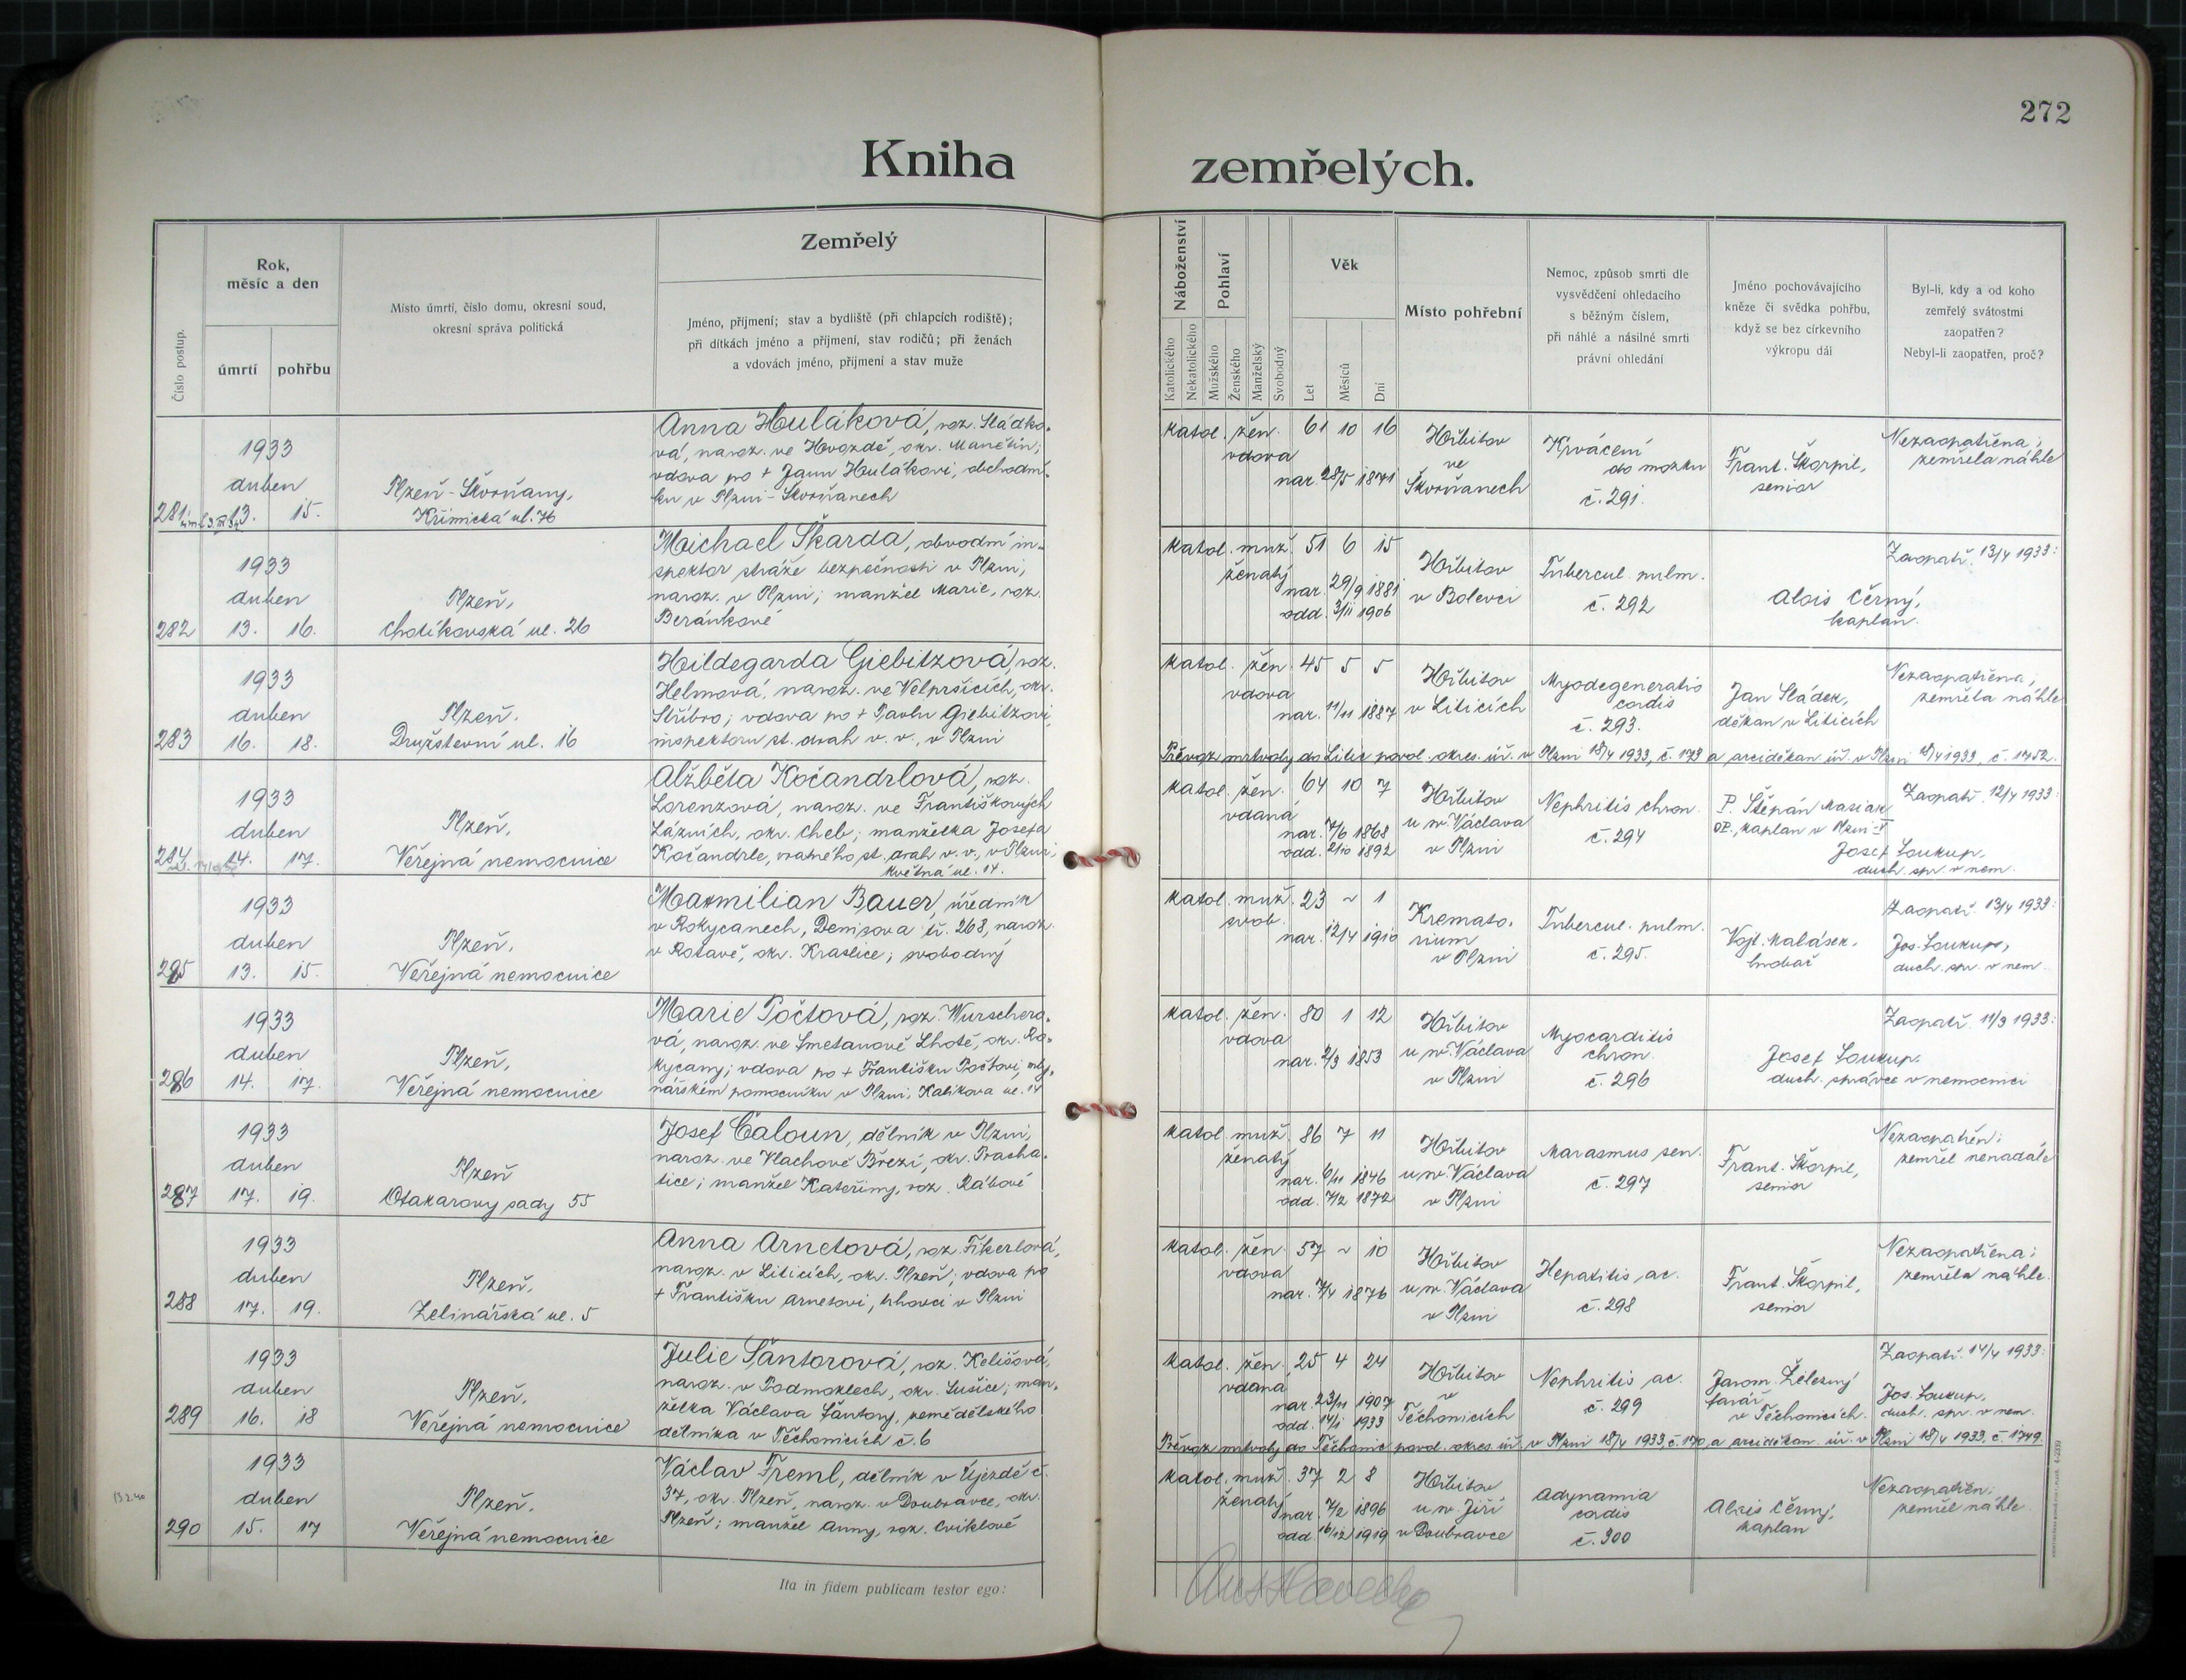 272
Kniha zemřelých.
Číslo postup.
Rok,
měsíc a den
úmrtí
pohřbu
Místo úmrtí, číslo domu, okresní soud,
okresní správa politická
Zemřelý
Jméno, příjmení; stav a bydliště (při chlapcích rodiště);
při dítkách jméno a příjmení, stav rodičů; při ženách
a vdovách jméno, příjmení a stav muže
Náboženství
Katolického
Nekatolického
Pohlaví
Mužského
Ženského
Manželský
Svobodný
Věk
Let
Měsíců
Dní
Místo pohřební
Nemoc, způsob smrti dle
vysvědčení ohledacího
s běžným číslem,
při náhlé a násilné smrti
právní ohledání
Jméno pochovávajícího
kněze či svědka pohřbu,
když se bez církevního
výkropu dál
Byl-li, kdy a od koho
zemřelý svátostmi
zaopatřen?
Nebyl-li zaopatřen, proč?
281
1933
duben
13. 15.
Plzeň-Škvrňany,
Křimická ul. 76
Anna Huláková, roz. Sládko-
vá, naroz. ve Hvozdě, okr. Manětín;
vdova po + Janu Hulákovi, obchodní-
ku v Plzni-Škvrňanech
katol. žen. 61 10 16
vdova
nar. 28/5 1871
Hřbitov
ve
Škvrňanech
Krvácení
do mozku
č. 291.
Frant. Škorpil,
senior
Nezaopatřena;
zemřela náhle
282
1933
duben
13. 16.
Plzeň,
Chotíkovská ul. 26
Michael Škarda, obvodní in-
spektor stráže bezpečnosti v Plzni,
naroz. v Plzni; manžel Marie, roz.
Beránkové
katol. muž. 51 6 15
ženatý
nar. 29/9 1881
odd. 3/11 1906
Hřbitov
v Bolevci
Tubercul. pulm.
č. 292
Alois Černý,
kaplan.
Zaopatř. 13/4 1933:
283
1933
duben
16. 18.
Plzeň.
Družstevní ul. 16
Hildegarda Giebitzová, roz.
Helmová, naroz. ve Velpršicích, okr.
Stříbro; vdova po + Pavlu Giebitzovi,
inspektoru st. drah v. v., v Plzni
katol. žen. 45 5 5
vdova
nar. 11/11 1887
Hřbitov
v Liticích
Myodegeneratio
cordis
č. 293.
Jan Sládek,
děkan v Liticích
Nezaopatřena;
zemřela náhle
Převoz mrtvoly do Litic povol. okres. úř. v Plzni 18/4 1933, č. 173 a arciděkan. úř. v Plzni 18/4 1933, č. 1752.
284
1933
duben
14. 17.
Plzeň,
Veřejná nemocnice
Alžběta Kočandrlová, roz.
Lorenzová, naroz. ve Františkových
Lázních, okr. Cheb; manželka Josefa
Kočandrle, vratného st. drah v. v., v Plzni,
Květná ul. 14.
katol. žen. 64 10 7
vdaná
nar. 7/6 1868
odd. 2/10 1892
Hřbitov
u sv. Václava
v Plzni
Nephritis chron.
č. 294
P. Štěpán
kaplan v Plzni
Zaopatř. 12/4 1933:
Josef Soukup,
duch. spr. v nem.
285
1933
duben
13. 15.
Plzeň,
Veřejná nemocnice
Maxmilian Bauer, úředník
v Rokycanech, Denisova tř. 268, naroz.
v Rotavě, okr. Kraslice; svobodný
katol. muž. 23 ~ 1
svob.
nar. 12/4 1910
Kremato-
rium
v Plzni
Tubercul. pulm.
č. 295.
Vojt. Kalásek,
hrobař
Zaopatř. 13/4 1933:
Jos. Soukup,
duch. spr. v nem.
286
1933
duben
14. 17.
Plzeň,
Veřejná nemocnice
Marie Počtová, roz. Wurschero-
vá, naroz. ve Smetanově Lhotě, okr. Ro-
kycany; vdova po + Františku Počtovi, mly-
nářském pomocníku v Plzni, Kalikova ul. 14
katol. žen. 80 1 12
vdova
nar. 2/3 1853
Hřbitov
u sv. Václava
v Plzni
Myocarditis
chron.
č. 296
Josef Soukup,
duch. správce v nemocnici
Zaopatř. 11/3 1933:
287
1933
duben
17. 19.
Plzeň
Otakarovy sady 55
Josef Čaloun, dělník v Plzni,
naroz. ve Vlachově Březí, okr. Pracha-
tice; manžel Kateřiny, roz. Rábové
katol. muž. 86 7 11
ženatý
nar. 6/11 1846
odd. 7/2 1872
Hřbitov
u sv. Václava
v Plzni
Marasmus sen.
č. 297
Frant. Škorpil,
senior
Nezaopatřen;
zemřel nenadále
288
1933
duben
17. 19.
Plzeň,
Zelinářská ul. 5
Anna Arnetová, roz. Fikerlová,
naroz. v Liticích, okr. Plzeň; vdova po
+ Františku Arnetovi, trhovci v Plzni
katol. žen. 57 ~ 10
vdova
nar. 7/4 1876
Hřbitov
u sv. Václava
v Plzni
Hepatitis ac.
č. 298
Frant. Škorpil,
senior
Nezaopatřena;
zemřela náhle.
289
1933
duben
16. 18
Plzeň,
Veřejná nemocnice
Julie Šantorová, roz. Kelišová,
naroz. v Podmoklech, okr. Sušice; man-
želka Václava Šantory, zemědělského
dělníka v Těchonicích č. 6
katol. žen. 25 4 24
vdaná
nar. 23/11 1907
odd. 14/1 1933
Hřbitov
v
Těchonicích
Nephritis ac.
č. 299
Jarom. Železný
farář
v Těchonicích.
Zaopatř. 14/4 1933:
Jos. Soukup,
duch. spr. v nem.
Převoz mrtvoly do Těchonic povol. okres. úř. v Plzni 18/4 1933, č. 170, a arciděkan. úř. v Plzni 18/4 1933, č. 1749.
13.2.40
290
1933
duben
15. 17
Plzeň,
Veřejná nemocnice
Václav Treml, dělník v Újezdě č.
37, okr. Plzeň, naroz. v Doubravce, okr.
Plzeň; manžel Anny, roz. Cviklové
katol. muž. 37 2 8
ženatý
nar. 7/2 1896
odd. 16/12 1919
Hřbitov
u sv. Jiří
v Doubravce
Adynamia
cordis
č. 300
Alois Černý,
kaplan
Nezaopatřen;
zemřel náhle.
Ita in fidem publicam testor ego: